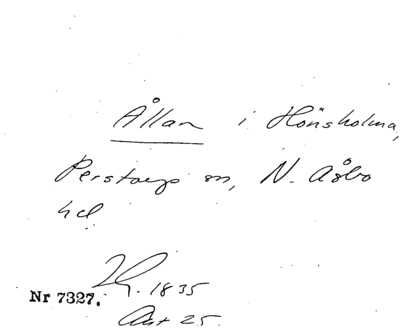 Ållan i Hönsholma,
Perstorp sn, N. Åsbo
hd
1835
Nr 7327.
Akt 25.